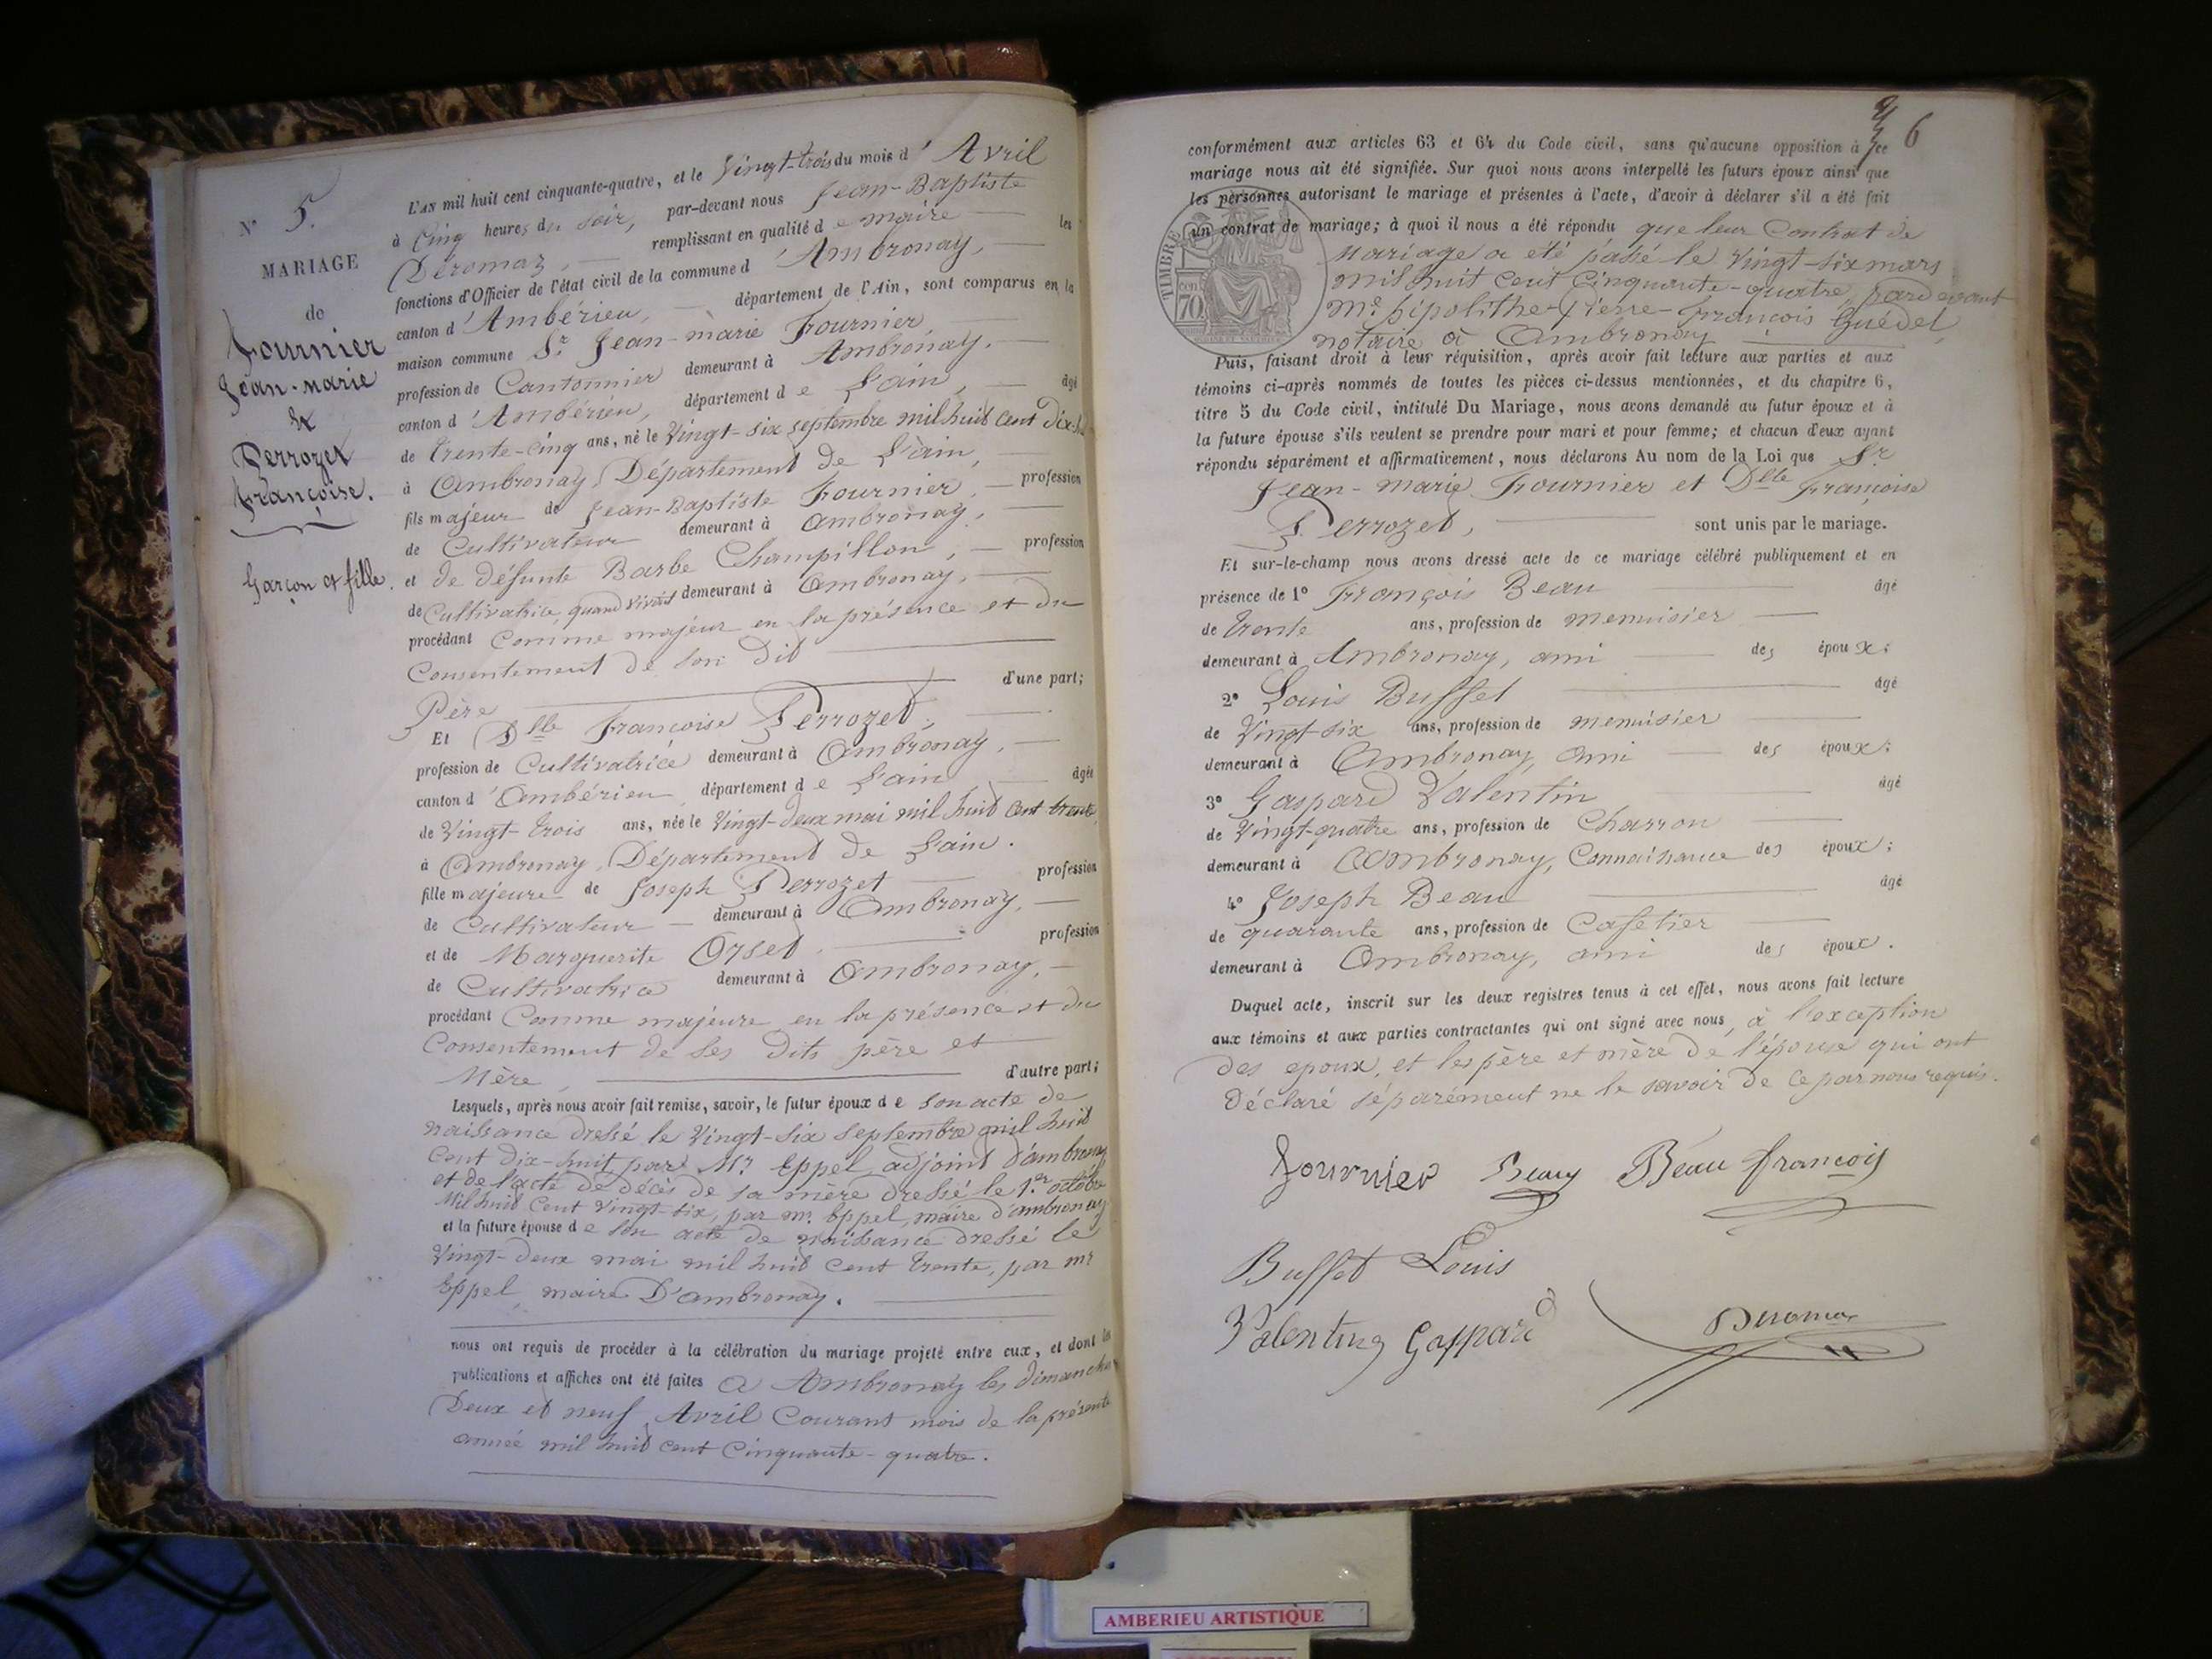 N° 5.
MARIAGE
de
Fournier
Jean-marie
&
Perrozet
Françoise.
Garçon et fille.
L'AN mil huit cent cinquante-quatre, et le Vingt-trois du mois d'Avril
à Cinq heures du soir, par-devant nous Jean-Baptiste
Deromaz, remplissant en qualité de maire les
fonctions d'Officier de l'état civil de la commune d'Ambronay,
canton d'Ambérieu, département de l'Ain, sont comparus en la
maison commune Sr Jean-marie Fournier,
profession de Cantonnier demeurant à Ambronay.
canton d'Ambérieu, département de L'ain, âgé
de trente-cinq ans, né le Vingt-six septembre mil huit cent dix-huit
à Ambronay, Département de L'ain,
fils majeur de Jean-Baptiste Fournier, profession
de Cultivateur demeurant à Ambronay,
et de défunte Barbe Champillon, profession
de Cultivatrice, quand vivait demeurant à Ambronay,
procédant Comme majeur en la présence et du
Consentement de son dit
Père d'une part;
Et Dlle Françoise Perrozet,
profession de Cultivatrice demeurant à Ambronay,
canton d'Ambérieu, département de L'ain âgée
de Vingt-trois ans, née le Vingt-deux mai mil huit cent trente,
à Ambronay, Département de L'ain.
fille majeure de Joseph Perrozet profession
de Cultivateur demeurant à Ambronay,
et de Marguerite Orset profession
de Cultivatrice demeurant à Ambronay,
procédant Comme majeure en la présence et du
Consentement de ses dits père et
Mère, d'autre part;
Lesquels, après nous avoir fait remise, savoir, le futur époux de son acte de
naissance dressé le Vingt-six septembre mil huit
Cent dix-huit par Mr Eppel adjoint d'ambronay
et de l'acte de décès de sa mère dressé le 1.er octobre
Mil huit Cent Vingt-six, par mr. Eppel, maire d'ambronay
et la future épouse de son acte de naissance dressé le
Vingt-deux mai mil huit cent trente, par mr
Eppel, maire D'ambronay.
nous ont requis de procéder à la célébration du mariage projeté entre eux, et dont les
publications et affiches ont été faites a Ambronay les dimanches
Deux et neuf Avril Courant mois de la présente
année mil huit cent Cinquante-quatre.
6
conformément aux articles 63 et 64 du Code civil, sans qu'aucune opposition à ce
mariage nous ait été signifiée. Sur quoi nous avons interpellé les futurs époux ainsi que
les personnes autorisant le mariage et présentes à l'acte, d'avoir à déclarer s'il a été fait
un contrat de mariage; à quoi il nous a été répondu que leur Contrat de
Mariage a été passé le Vingt-six mars
mil huit cent Cinquante-quatre, pardevant
Me hipolithe-Pierre-françois Guédel,
notaire à Ambronay
TIMBRE
cen
70
Puis, faisant droit à leur réquisition, après avoir fait lecture aux parties et aux
témoins ci-après nommés de toutes les pièces ci-dessus mentionnées, et du chapitre 6,
titre 5 du Code civil, intitulé Du Mariage, nous avons demandé au futur époux et à
la future épouse s'ils veulent se prendre pour mari et pour femme; et chacun d'eux ayant
répondu séparément et affirmativement, nous déclarons Au nom de la Loi que Sr
Jean-marie Fournier et Dlle Françoise
Perrozet, sont unis par le mariage.
Et sur-le-champ nous avons dressé acte de ce mariage célébré publiquement et en
présence de 1° François Beau âgé
de trente ans, profession de menuisier
demeurant à Ambronay, ami des époux;
2° Louis Buffet âgé
de Vingt-six ans, profession de menuisier
demeurant à Ambronay, ami des époux;
3° Gaspard Valentin âgé
de Vingt-quatre ans, profession de Charron
demeurant à Ambronay, Connaissance des époux;
4° Joseph Beau âgé
de quarante ans, profession de Cafetier
demeurant à Ambronay, ami des époux.
Duquel acte, inscrit sur les deux registres tenus à cet effet, nous avons fait lecture
aux témoins et aux parties contractantes qui ont signé avec nous, à l'exception
des epoux, et les père et mère de l'épouse qui ont
Déclaré séparément ne le savoir de ce par nous requis.
fournier Beau Beau françois
Buffet Louis
Valentin Gaspard Deromaz
AMBERIEU ARTISTIQUE